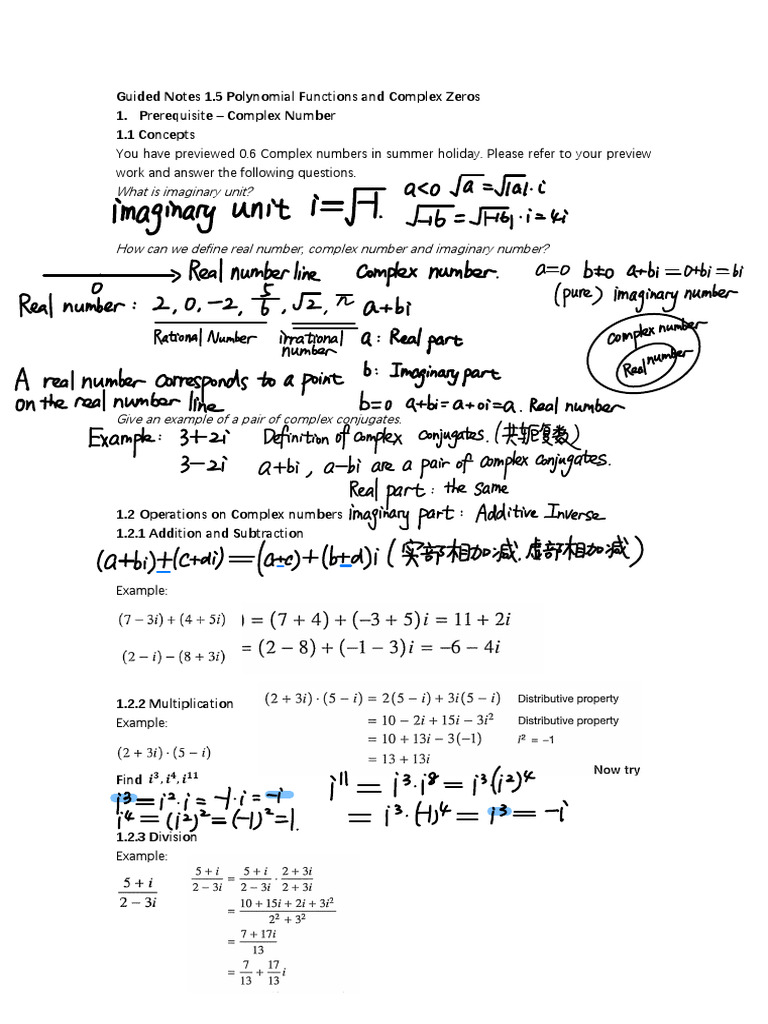 Guided Notes 1.5 Polynomial Functions and Complex Zeros
1. Prerequisite – Complex Number
1.1 Concepts
You have previewed 0.6 Complex numbers in summer holiday. Please refer to your preview
work and answer the following questions.
What is imaginary unit?
imaginary unit i=√-1.
a<0 √a=√|a|·i
√-16=√|-16|·i=4i
How can we define real number, complex number and imaginary number?
0
Real number line
Complex number.
a=0 b≠0 a+bi=0+bi=bi
(pure) imaginary number
Real number: 2, 0, -2, 5/6, √2, π
a+bi
Rational Number
irrational number
a: Real part
b: Imaginary part
Complex number
Real number
A real number corresponds to a point
on the real number line
b=0 a+bi=a+0i=a. Real number
Give an example of a pair of complex conjugates.
Example: 3+2i
3-2i
Definition of complex conjugates. (共轭复数)
a+bi, a-bi are a pair of complex conjugates.
Real part: the same
1.2 Operations on Complex numbers
imaginary part: Additive Inverse
1.2.1 Addition and Subtraction
(a+bi)±(c+di)=(a±c)+(b±d)i (实部相加减.虚部相加减)
Example:
(7 − 3i) + (4 + 5i) ) = (7 + 4) + (−3 + 5)i = 11 + 2i
(2 − i) − (8 + 3i) = (2 − 8) + (−1 − 3)i = −6 − 4i
1.2.2 Multiplication
Example:
(2 + 3i) · (5 − i)
(2 + 3i) · (5 − i) = 2(5 − i) + 3i(5 − i) Distributive property
= 10 − 2i + 15i − 3i² Distributive property
= 10 + 13i − 3(−1) i² = −1
= 13 + 13i
Now try
Find i³, i⁴, i¹¹
i³=i²·i=-1·i=-i
i⁴=(i²)²=(-1)²=1.
i¹¹=i³·i⁸=i³(i²)⁴
=i³·(-1)⁴=i³=-i
1.2.3 Division
Example:
(5 + i)/(2 − 3i)
(5 + i)/(2 − 3i) = (5 + i)/(2 − 3i) · (2 + 3i)/(2 + 3i)
= (10 + 15i + 2i + 3i²)/(2² + 3²)
= (7 + 17i)/13
= 7/13 + 17/13 i